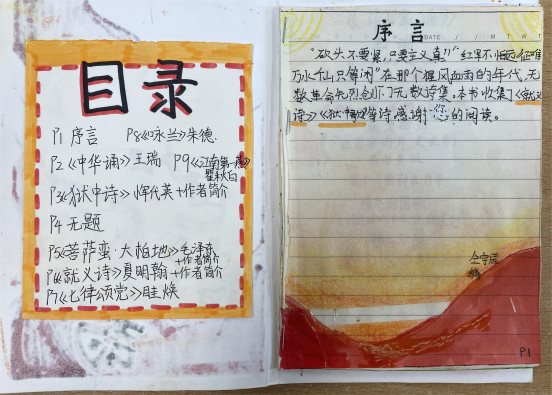 目录
P1 序言 P8《咏兰》朱德
P2《中华诵》王瑞 P9《江南第一燕》瞿秋白
P3《狱中诗》恽代英+作者简介
P4 无题
P5《菩萨蛮·大柏地》毛泽东+作者简介
P6《就义诗》夏明翰+作者简介
P7《七律颂党》眭焕
序言
DATE / / M T W T
"砍头不要紧,只要主义真!""红军不怕远征难
万水千山只等闲"在那个腥风血雨的年代,无
数革命先烈创下了无数诗集。本书收集了《就义
诗》《狱中歌》等诗感谢您的阅读。
仝宇辰
编
P1